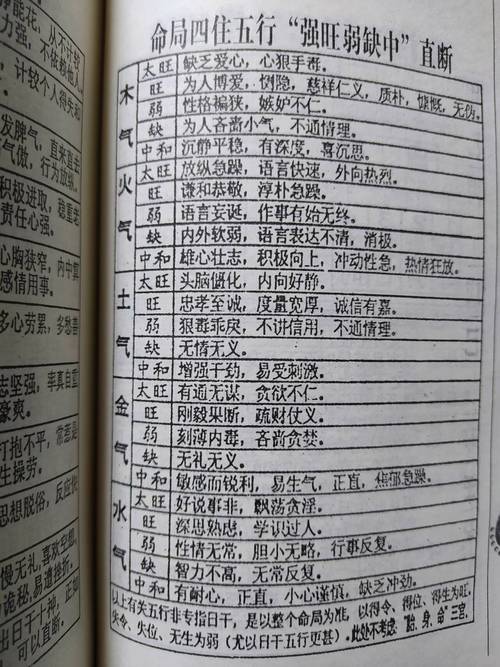 命局四住五行“强旺弱缺中”直断
木气
太旺 缺乏爱心，心狠手毒。
旺 为人博爱，恻隐，慈祥仁义，质朴，慷慨，无伪。
弱 性格褊狭，嫉妒不仁。
缺 为人吝啬小气，不通情理。
中和 沉静平稳，有深度，喜沉思。
火气
太旺 放纵急躁，语言快速，外向热烈。
旺 谦和恭敬，淳朴急躁。
弱 语言妄诞，作事有始无终。
缺 内外软弱，语言表达不清，消极。
中和 雄心壮志，积极向上，冲动性急，热情狂放。
土气
太旺 头脑僵化，内向好静。
旺 忠孝至诚，度量宽厚，诚信有嘉。
弱 狠毒乖戾，不讲信用，不通情理。
缺 无情无义。
中和 增强干劲，易受刺激。
金气
太旺 有通无谋，贪欲不仁。
旺 刚毅果断，疏财仗义。
弱 刻薄内毒，吝啬贪婪。
缺 无礼无义。
中和 敏感而锐利，易生气，正直，焦郁急躁。
水气
太旺 好说事非，飘荡贪淫。
旺 深思熟虑，学识过人。
弱 性情无常，胆小无略，行事反复。
缺 智力不高，无常反复。
中和 有耐心，正直，小心谨慎，缺乏冲劲。
以上有关五行非专指日干，是以整个命局为准，以得令、得位、得生为旺，
失令、失位、无生为弱（尤以日干五行更甚）。此处不考虑“胎、身、命”三宫。
静能花，从不计较
力强，不依赖他人
计较个人得失和
发脾气，直来直去
气傲，行为放纵。
积极进取，稳重老
责任心强。
心胸狭窄，内中算
感情用事。
多心劳累，多愁善
志坚强，率真自重
豪爽。
打抱不平，常惹是
生操劳。
思想脱俗，反应快
慢无礼，喜欢空想
诡秘，易遭挫折。
出日干十神，正如
可以直断。